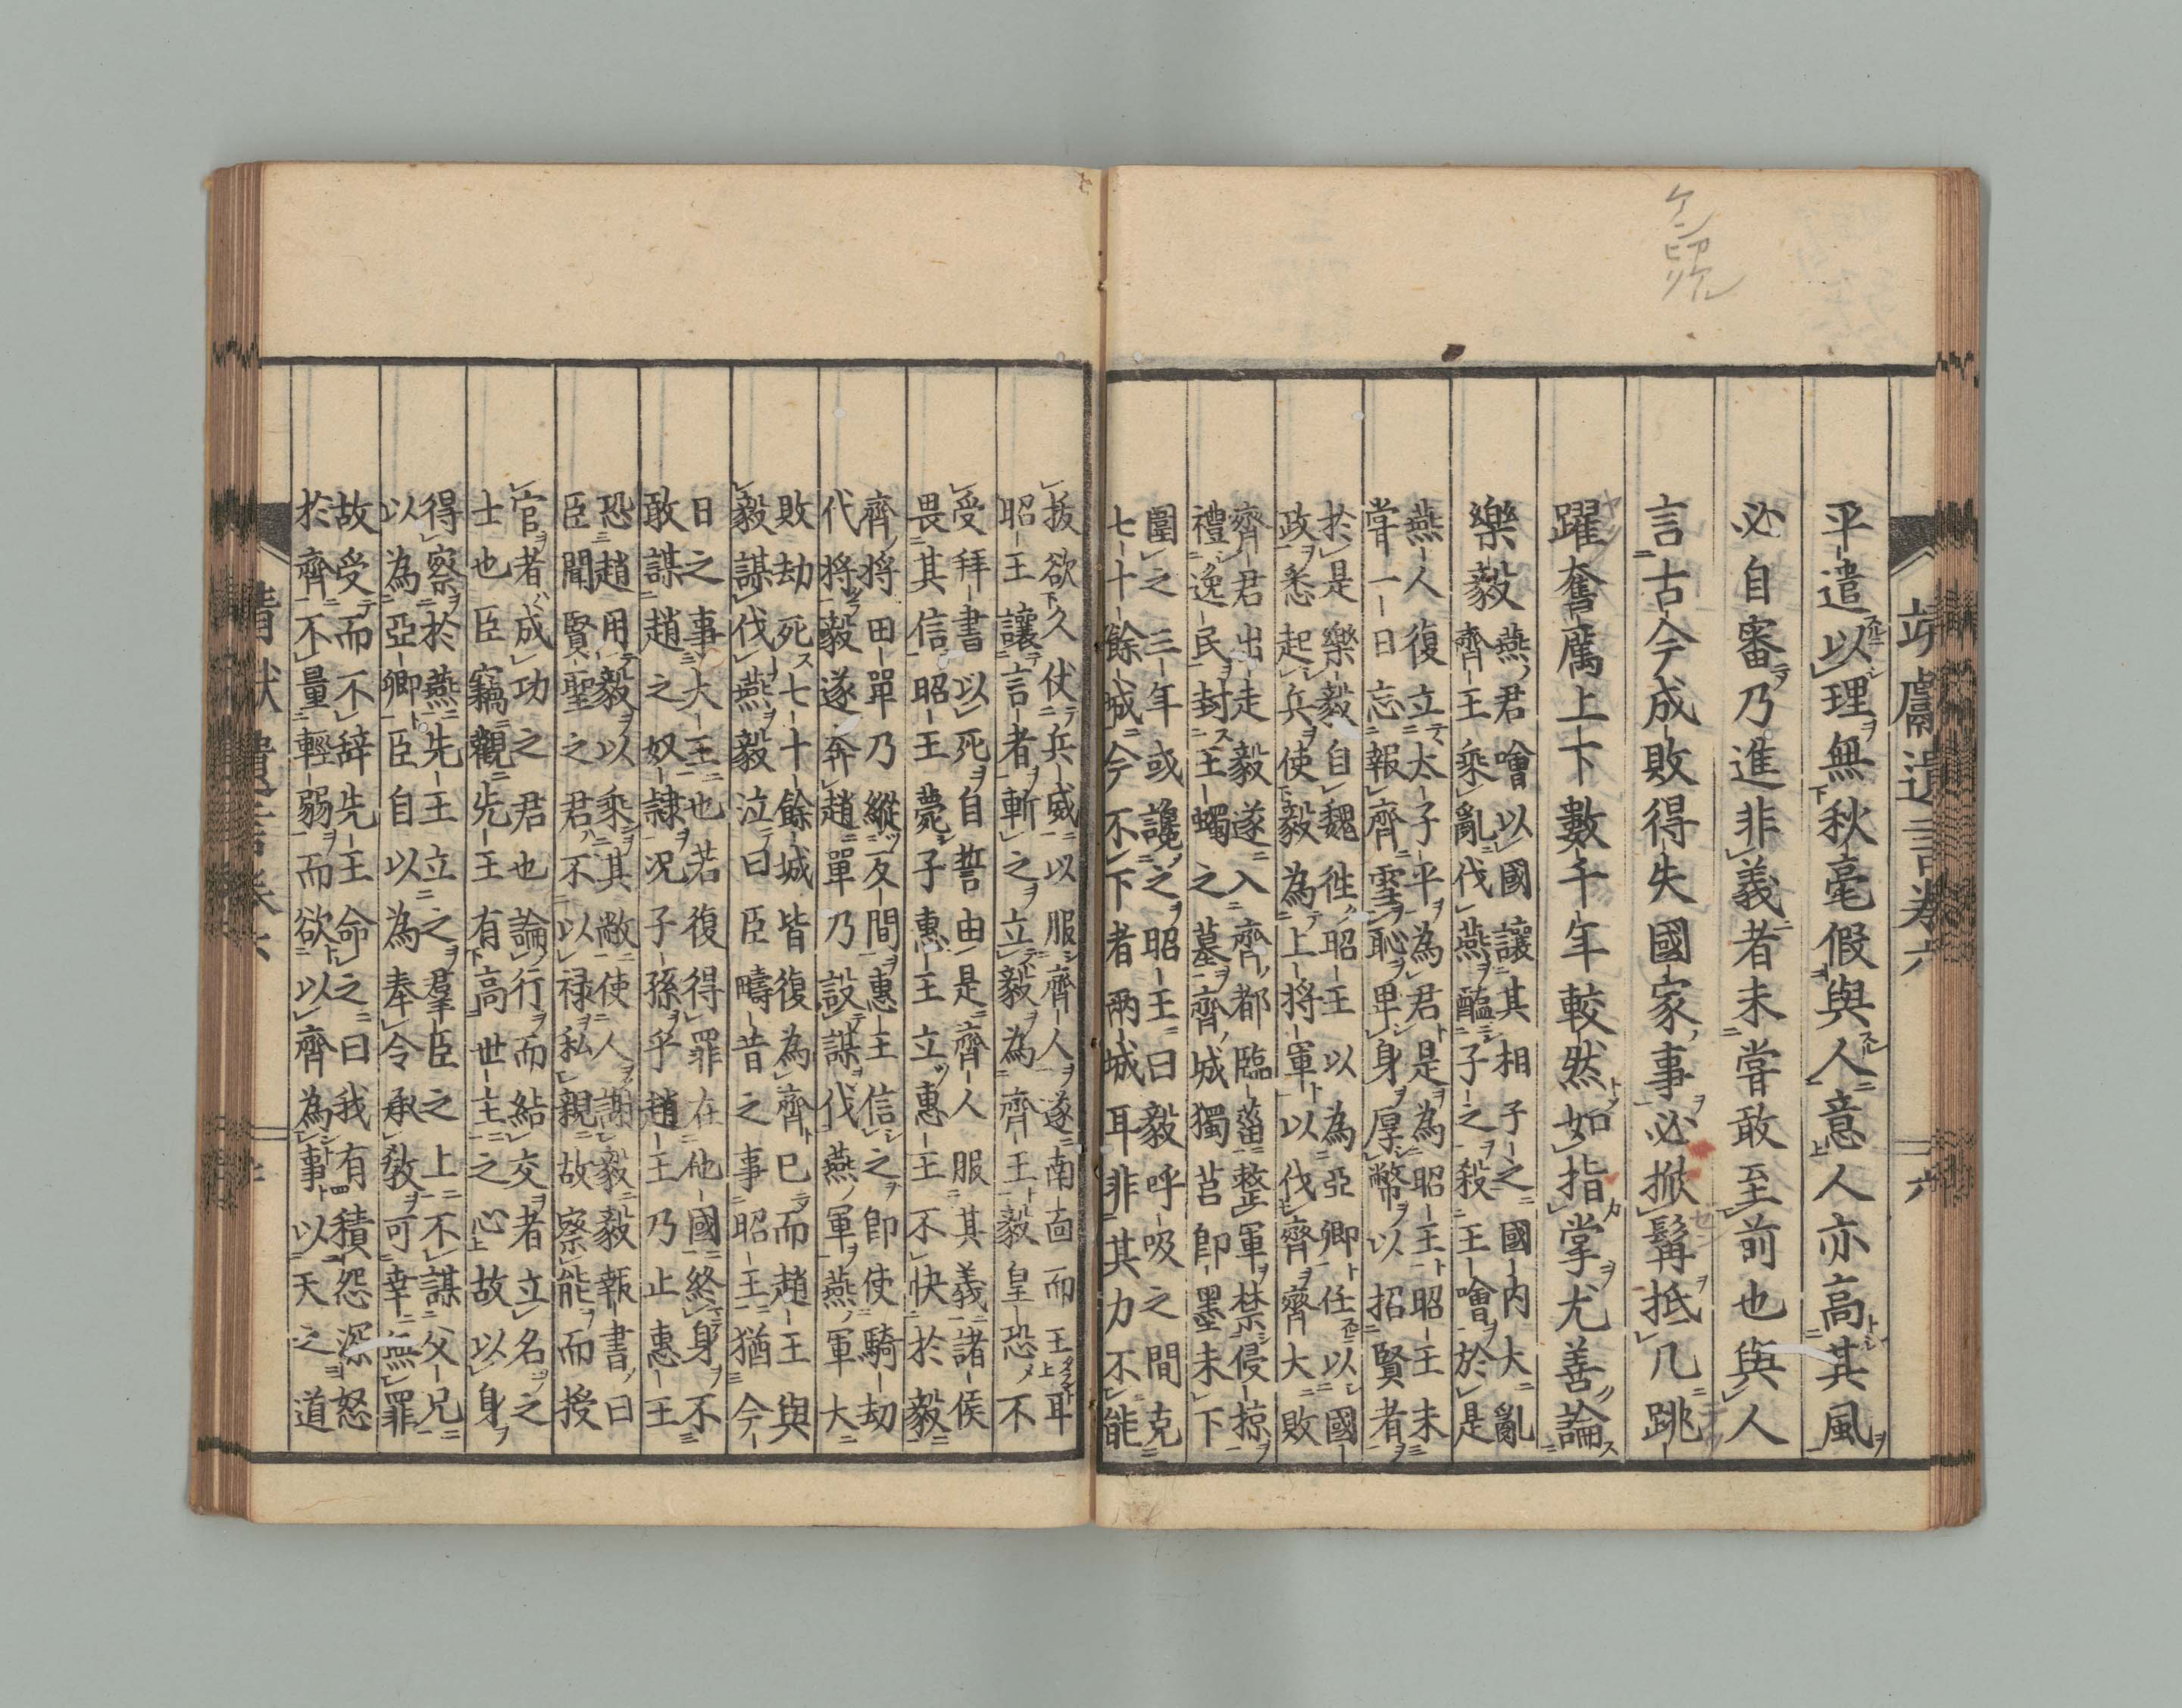 靖獻遺言卷六
六
平遣以理無秋毫假與人意人亦高其風
必自審乃進非義者未嘗敢至前也與人
言古今成敗得失國家事必掀髯抵几跳
躍奮厲上下數千年較然如指掌尤善論
樂毅
燕君噲以國讓其相子之國內大亂
齊王乘亂伐燕醢子之殺王噲於是
燕人復立太子平為君是為昭王昭王未
嘗一日忘報齊雪恥卑身厚幣以招賢者
於是樂毅自魏徃昭王以為亞卿任以國
政悉起兵使毅為上將軍以伐齊齊大敗
齊君出走毅遂入齊都臨菑整軍禁侵掠
禮逸民封王蠋之墓齊城獨莒即墨未下
圍之三年或讒之昭王曰毅呼吸之間克
七十餘城今不下者兩城耳非其力不能
拔欲久仗兵威以服齊人遂南面而王耳
昭王讓言者斬之立毅為齊王毅皇恐不
受拜書以死自誓由是齊人服其義諸侯
畏其信昭王薨子惠王立惠王不快於毅
齊將田單乃縱反間惠王信之即使騎劫
代將毅遂奔趙單乃設謀伐燕軍燕軍大
敗劫死七十餘城皆復為齊已而趙王與
毅謀伐燕毅泣曰臣疇昔之事昭王猶今
日之事大王也若復得罪在他國終身不
敢謀趙之奴隸况子孫乎趙王乃止惠王
恐趙用毅以乘其敝使人謝毅毅報書曰
臣聞賢聖之君不以禄私親故察能而授
官者成功之君也論行而結交者立名之
士也臣竊觀先王有高世主之心故以身
得察於燕先王立之羣臣之上不謀父兄
以為亞卿臣自以為奉令承教可幸無罪
故受而不辭先王命之曰我有積怨深怒
於齊不量輕弱而欲以齊為事以天之道